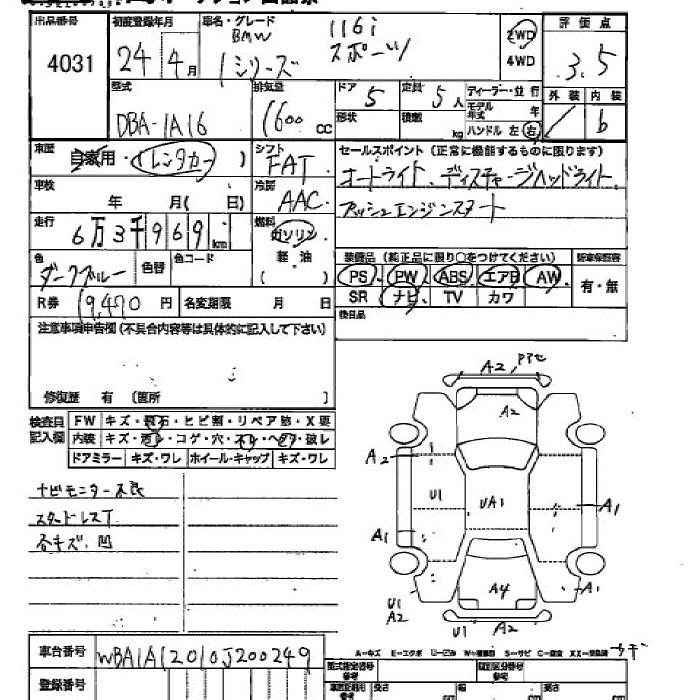 出品番号 初度登録年月 車名・グレード 評価点
4031 24年 4月 BMW 116i 2WD 3.5
1シリーズ スポーツ 4WD
型式 排気量 ドア 定員 ディーラー・並行 外装 内装
DBA-1A16 1600cc 5 5人 モデル年式 年 b
形状 積載 kg ハンドル 左 右
車歴 自家用・(レンタカー) シフト セールスポイント(正常に機能するものに限ります)
FAT オートライト、ディスチャージヘッドライト、
車検 年 月( 日) 冷房 AAC プッシュエンジンスタート
走行 6万3千969km 燃料 ガソリン
軽油
( )
色 ダークブルー 色替 色コード 装備品(純正品に限り○をつけてください) 新車保証書
PS PW ABS エアB AW 有・無
R券 9,470円 名変期限 月 日 SR ナビ TV カワ
注意事項申告欄(不具合内容等は具体的に記入して下さい) 後日品
修復歴 有 (箇所 )
検査員記入欄 FW キズ・飛石・ヒビ割・リペア跡・X要
内装 キズ・汚レ・コゲ・穴・スレ・ヘタリ・破レ
ドアミラー キズ・ワレ ホイール・キャップ キズ・ワレ
ナビモニター不良
スタッドレスT
各キズ、凹
A2
A2
A2
U1
UA1
A1
A1
A4
A1
U1
A2
U1 A2
車台番号 WBA1A12010J200249
登録番号
A-キズ E-エクボ U-凹み S-サビ C-腐食 XX-交換済
型式指定番号 類別区分番号
長さ 幅 高さ